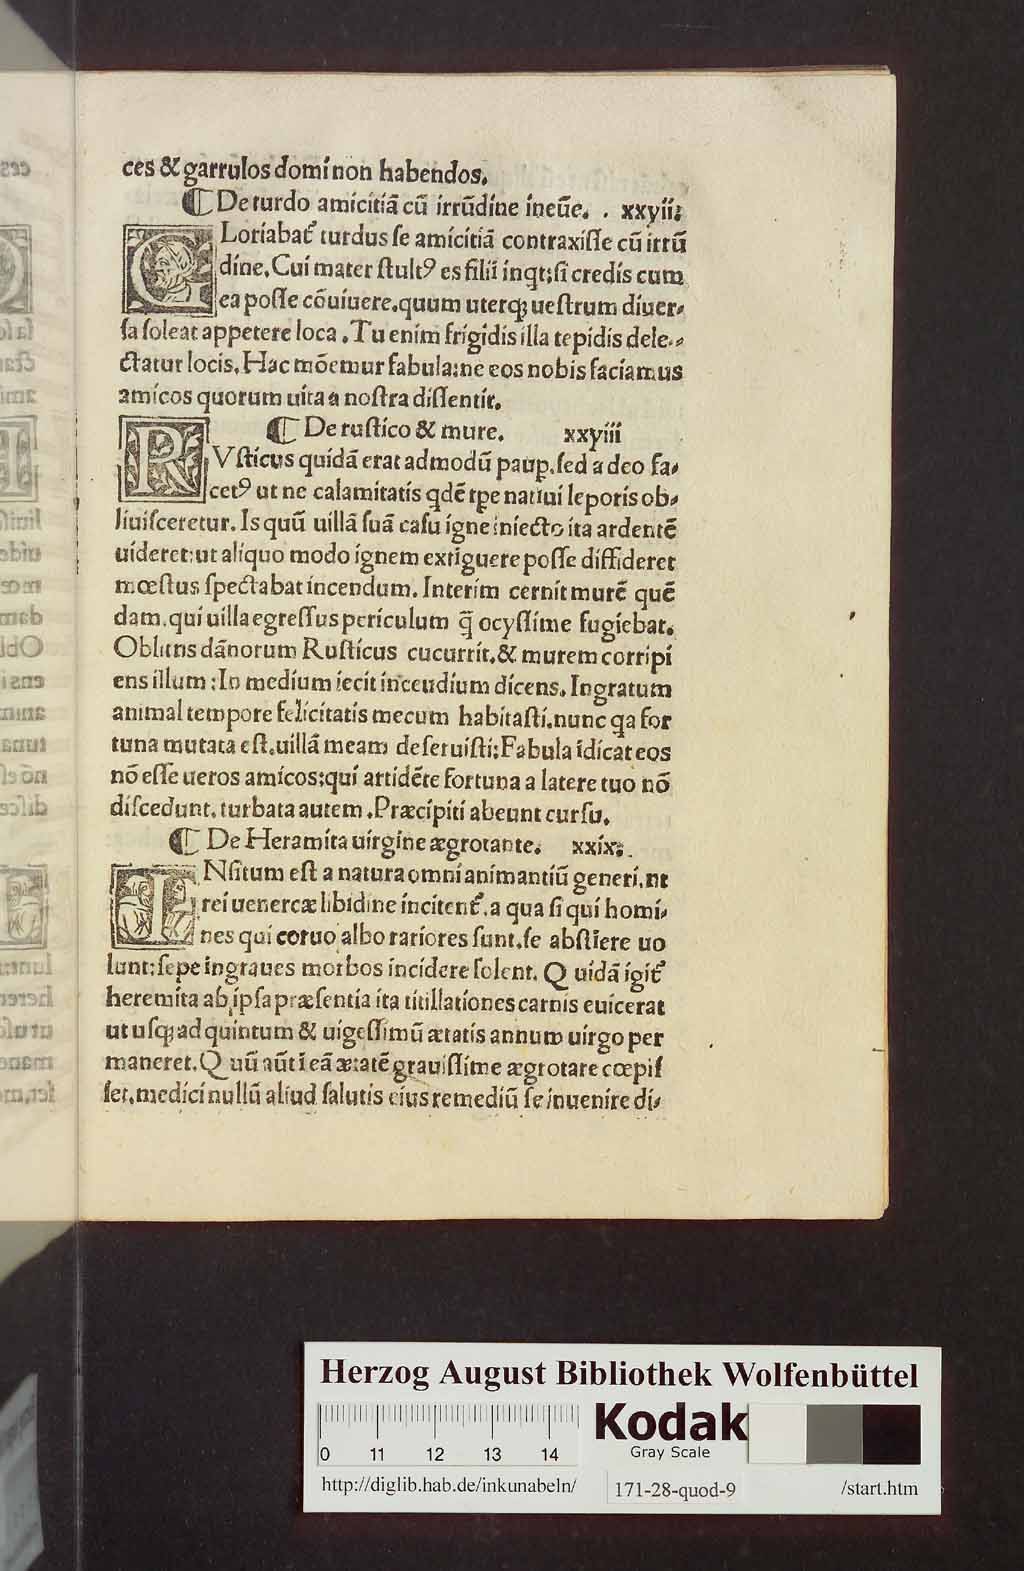 ces & garrulos domi non habendos.
¶ De turdo amicitiā cū irrūdine ineūe. . xxyii;
GLoriabat᷒ turdus se amicitiā contraxisse cū irrū
dine. Cui mater stultꝰ es filii inqt; si credis cum
ea posse cōuiuere. quum uterq; uestrum diuer-
sa soleat appetere loca. Tu enim frigidis illa tepidis dele-
ctatur locis. Hac mōemur fabula: ne eos nobis faciamus
amicos quorum uita a nostra dissentit.
¶ De rustico & mure. xxyiii
RVsticus quidā erat admodū paup. sed a deo fa-
cetꝰ ut ne calamitatis qdē tpe natiui leporis ob-
liuisceretur. Is quū uillā suā casu igne iniecto ita ardentē
uideret: ut aliquo modo ignem extiguere posse diffideret
mœstus spectabat incendum. Interim cernit murē quē
dam. qui uilla egressus periculum q̄ ocyssime fugiebat.
Oblitus dānorum Rusticus cucurrit. & murem corripi
ens illum: In medium iecit incendium dicens. Ingratum
animal tempore felicitatis mecum habitasti. nunc qa for
tuna mutata est. uillā meam deseruisti: Fabula īdicat eos
nō esse ueros amicos: qui artidēte fortuna a latere tuo nō
discedunt. turbata autem. Præcipiti abeunt cursu.
¶ De Heramita uirgine ægrotante. xxix;.
INsitum est a natura omni animantiū generi. ut
rei uenereæ libidine incitent᷒. a qua si qui homi-
nes qui coruo albo rariores sunt. se abstiere uo
lunt: sepe in graues morbos incidere solent. Quidā igit᷒
heremita ab ipsa præsentia ita titillationes carnis euicerat
ut usq; ad quintum & uigessimū ætatis annum uirgo per
maneret. Quū aūt ī eā ætatē grauissime ægrotare cœpis
set. medici nullū aliud salutis eius remediū se inuenire di-
Herzog August Bibliothek Wolfenbüttel
0 11 12 13 14
Kodak
Gray Scale
http://diglib.hab.de/inkunabeln/ 171-28-quod-9 /start.htm